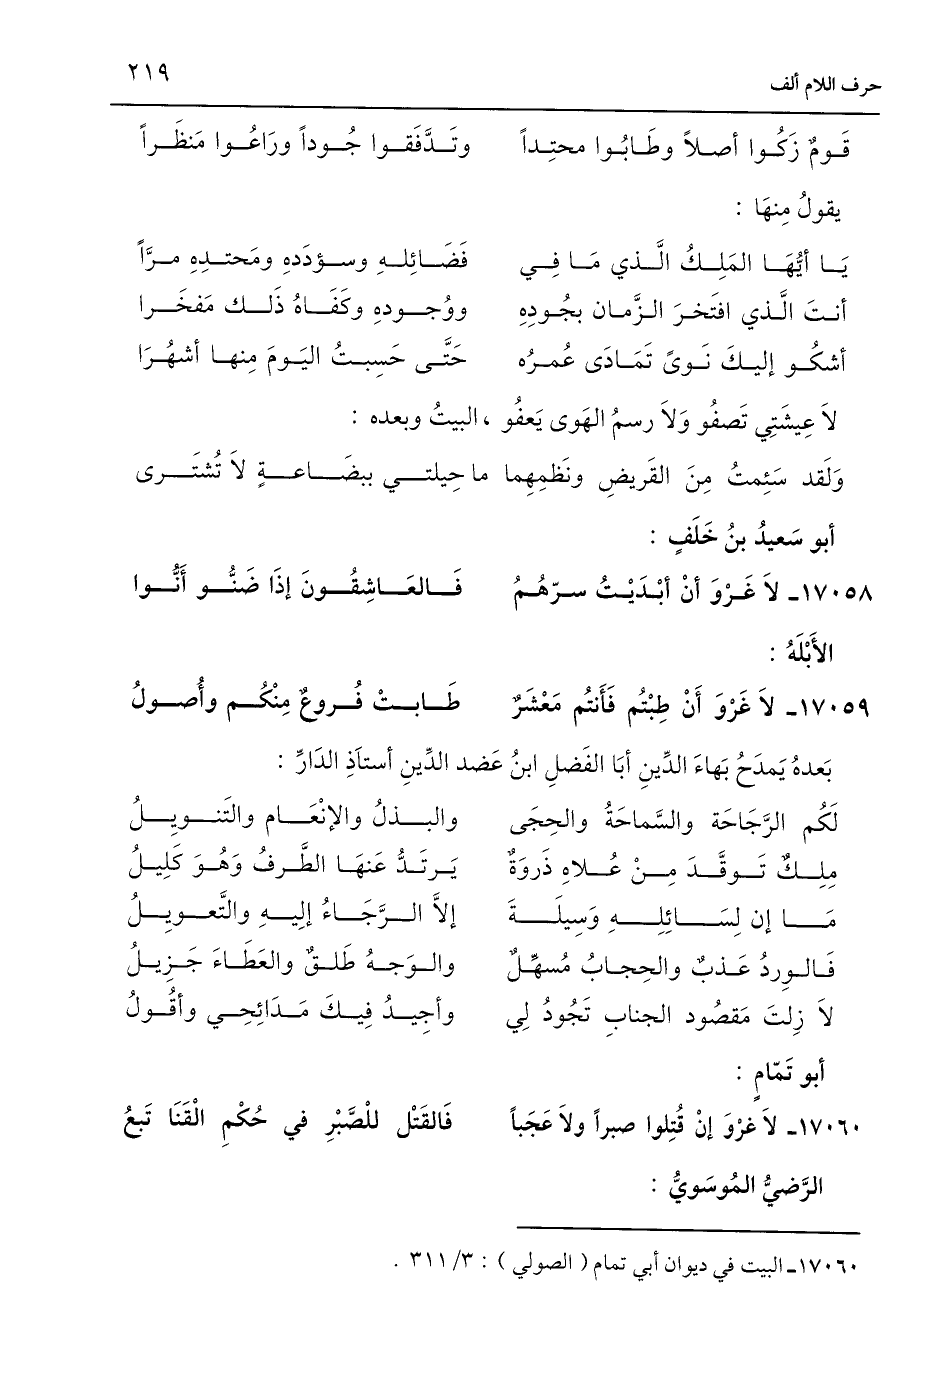 حرف اللام ألف ٢١٩
قَومٌ زَكُوا أصلاً وطَابُوا محتِداً وتَدَّفَقوا جُوداً ورَاعُوا مَنظَراً
يقولُ مِنهَا :
يَا أيُّهَا المَلِكُ الَّذي مَا فِي فَضَائلِهِ وسؤدَدِهِ ومَحتدِهِ مرَّاً
أنتَ الَّذي افتَخرَ الزَّمان بجُودِهِ ووُجودِهِ وكَفَاهُ ذَلك مَفخَرا
أشكُو إليكَ نَوىً تَمَادَى عُمرُه حَتَّى حَسِبتُ اليَومَ مِنها أشهُرَا
لاَ عِيشَتِي تَصفُو وَلاَ رسمُ الهَوى يَعفُو ، البيتُ وبعده :
وَلَقد سَئِمتُ مِنَ القَريضِ ونَظمِهِما ما حِيلتي ببضَاعةٍ لاَ تُشتَرى
أبو سَعيدُ بنُ خَلَفٍ :
١٧٠٥٨ـ لاَ غَرْوَ أنْ أبْدَيْتُ سرّهُمُ فَالعَاشِقُونَ إذَا ضَنُّو أَنُّوا
الأَبْلَهُ :
١٧٠٥٩ـ لاَ غَرْوَ أَنْ طِبْتُم فَأَنتُم مَعْشَرٌ طَابتْ فُروعٌ مِنْكُم وأُصولُ
بَعدهُ يَمدَحُ بَهاءَ الدِّينِ أبَا الفَضلِ ابنُ عَضد الدِّينِ أستاذِ الدَارِّ :
لَكُم الرَّجَاحَة والسَّماحَةُ والحِجَى والبذلُ والإنْعَام والتَنويلُ
مِلكٌ تَوقَّدَ مِنْ عُلاهِ ذَروَةٌ يَرتَدُّ عَنهَا الطَّرفُ وَهُوَ كَلِيلُ
مَا إن لسَائلِهِ وَسِيلَةَ إلاَّ الرَّجَاءُ إليهِ والتَّعويلُ
فَالوردُ عَذبٌ والحِجابُ مُسهَّلٌ والوَجهُ طَلقٌ والعَطَاءَ جَزيلُ
لاَ زِلتَ مَقصُود الجنابِ تَجُودُ لِي وأجِيدُ فِيكَ مَدَائِحِي وأقُولُ
أبو تَمّامٍ :
١٧٠٦٠ـ لاَ غَرْوَ إنْ قُتِلوا صبراً ولاَ عَجَباً فَالقَتْل للْصَّبْرِ في حُكْمِ الْقَنَا تَبِعُ
الرَّضيُّ المُوسَويُّ :
١٧٠٦٠ـ البيت في ديوان أبي تمام ( الصولي ) : ٣١١/٣ .